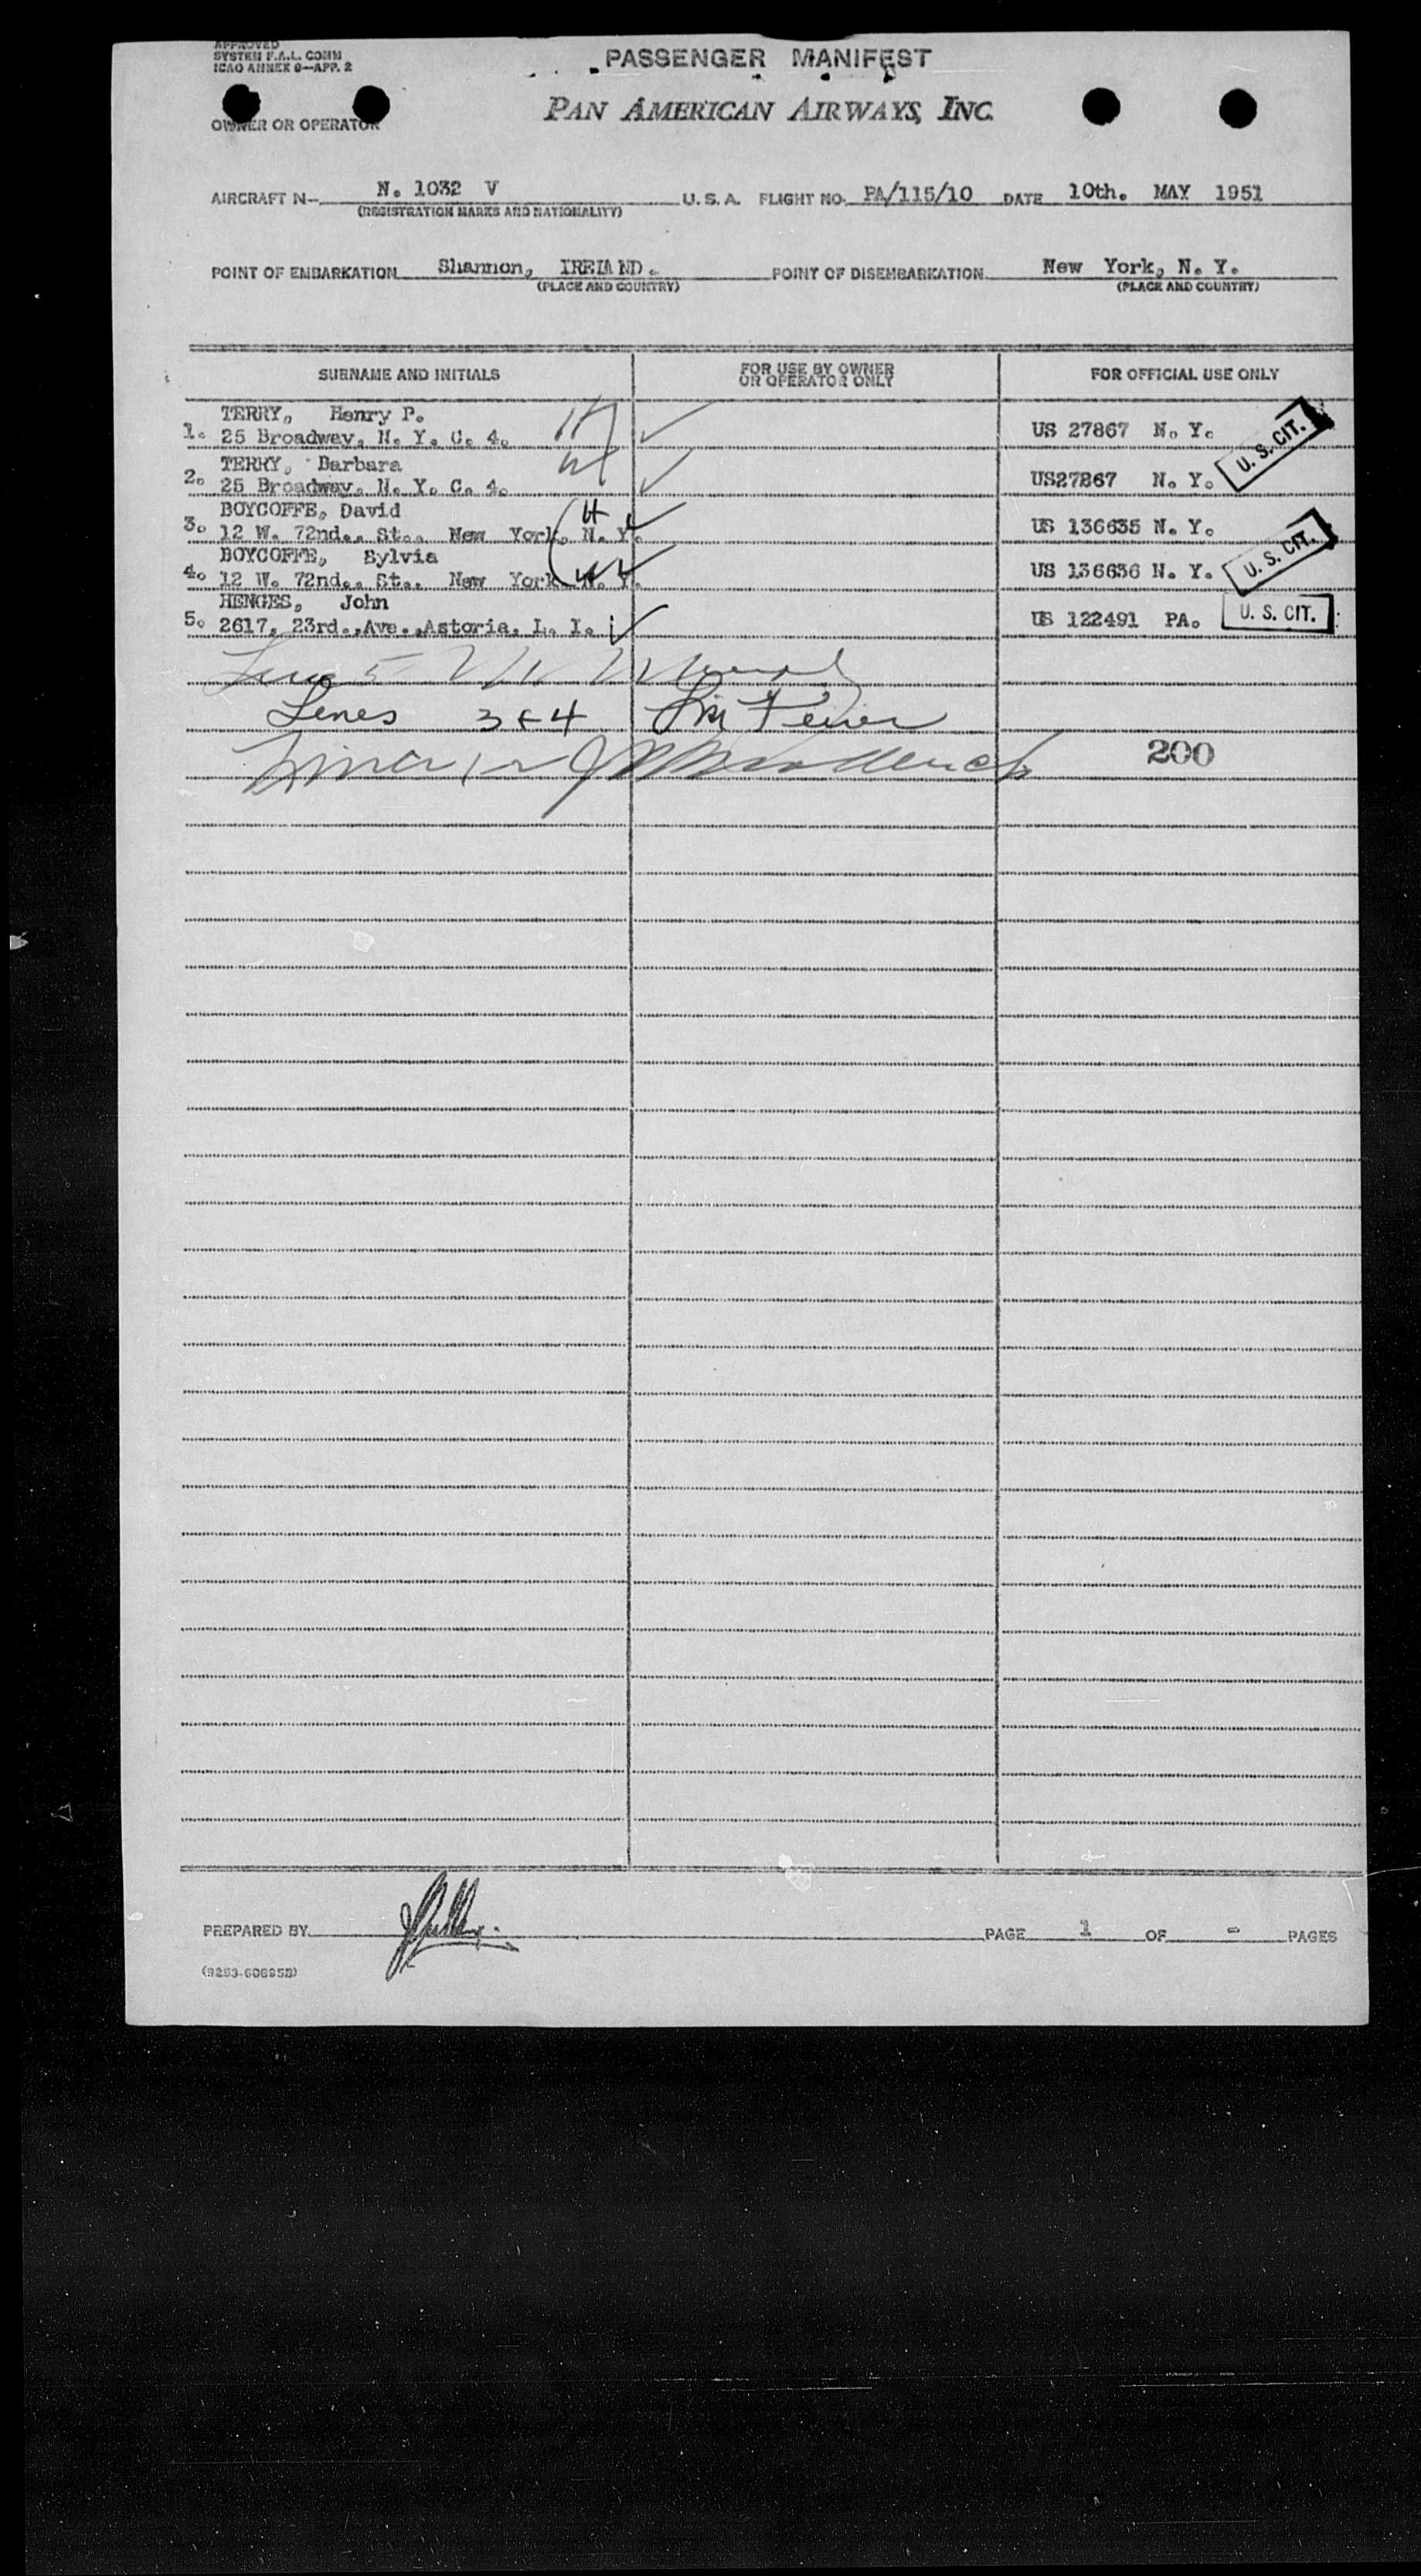 APPROVED
SYSTEM F.A.L. COMM
ICAO ANNEX 9—APP. 2
PASSENGER MANIFEST
OWNER OR OPERATOR
PAN AMERICAN AIRWAYS, INC.
AIRCRAFT N- N. 1032 V U. S. A. FLIGHT NO. PA/115/10 DATE 10th. MAY 1951
(REGISTRATION MARKS AND NATIONALITY)
POINT OF EMBARKATION Shannon, IRELAND. POINT OF DISEMBARKATION New York, N. Y.
(PLACE AND COUNTRY) (PLACE AND COUNTRY)
SURNAME AND INITIALS FOR USE BY OWNER OR OPERATOR ONLY FOR OFFICIAL USE ONLY
TERRY, Henry P.
1. 25 Broadway, N. Y. C. 4. US 27867 N. Y. U. S. CIT.
TERRY, Barbara
2. 25 Broadway, N. Y. C. 4. US27867 N. Y.
BOYCOFFE, David H
3. 12 W. 72nd., St., New York, N. Y. US 136635 N. Y. U. S. CIT.
BOYCOFFE, Sylvia
4. 12 W. 72nd., St., New York N. Y. W US 136636 N. Y.
HENGES, John
5. 2617, 23rd.,Ave.,Astoria, L. I. US 122491 PA. U. S. CIT.
Line 5
Lines 3 & 4
200
PREPARED BY PAGE 1 OF - PAGES
(9253-60695B)